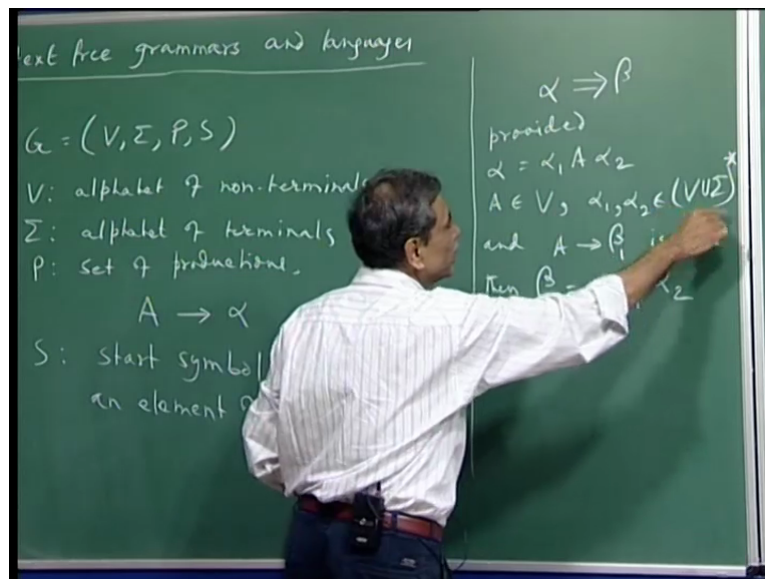 ext free grammars and languages
G = (V, Σ, P, S)
V: alphabet of non-terminals
Σ: alphabet of terminals
P: set of productions.
A → α
S: start symbol
an element
α ⇒ β
provided
α = α₁ A α₂
A ∈ V, α₁, α₂ ∈ (V ∪ Σ)*
and A → β₁ is
then β = α₂